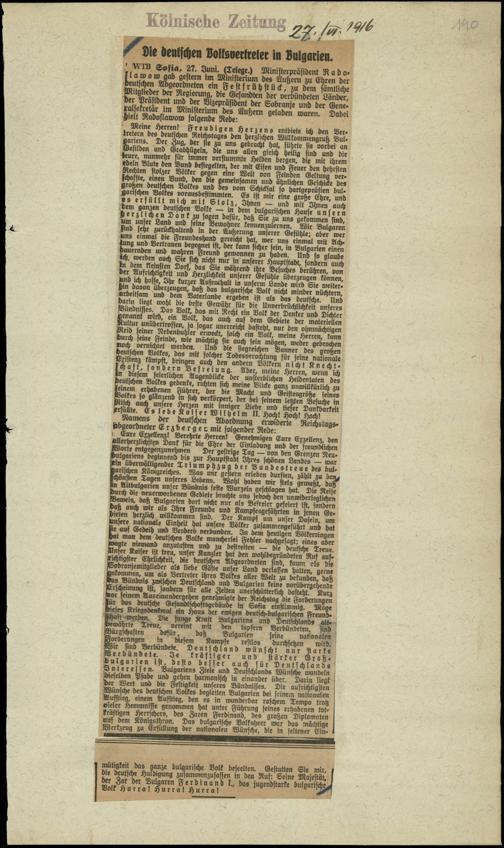 Kölnische Zeitung
27. VI. 1916
190
Die deutschen Volksvertreter in Bulgarien.
WTB Sofia, 27. Juni. (Telegr.) Ministerpräsident Rado-
slawow gab gestern im Ministerium des Äußern zu Ehren der
deutschen Abgeordneten ein Festfrühstück, zu dem sämtliche
Mitglieder der Regierung, die Gesandten der verbündeten Länder,
der Präsident und der Vizepräsident der Sobranje und der Gene-
ralsekretär im Ministerium des Äußern geladen waren. Dabei
hielt Radoslawow folgende Rede:
Meine Herren! Freudigen Herzens entbiete ich den Ver-
tretern des deutschen Reichstages den herzlichen Willkommengruß Bul-
gariens. Der Zug, der sie zu uns gebracht hat, führte sie vorbei an
Gefilden und Grabhügeln, die uns allen gleich heilig sind und die
teure, nunmehr für immer verstummte Helden bergen, die mit ihrem
edeln Blute den Bund besiegelten, der mit Eisen und Feuer den hehrsten
Rechten stolzer Völker gegen eine Welt von Feinden Geltung ver-
schaffte, einen Bund, den die gemeinsamen und ähnlichen Geschicke des
großen deutschen Volkes und des vom Schicksal so hartgeprüften bul-
garischen Volkes vorausbestimmten. Es ist mir eine große Ehre, und
es erfüllt mich mit Stolz, Ihnen — und mit Ihnen auch
dem ganzen deutschen Volke — in dem bulgarischen Hause unsern
herzlichen Dank zu sagen dafür, daß Sie zu uns gekommen sind,
um unser Land und seine Bewohner kennenzulernen. Wir Bulgaren
sind sehr zurückhaltend in der Äußerung unserer Gefühle; aber wer
uns einmal die Freundeshand gereicht hat, wer uns einmal mit Ach-
tung und Vertrauen begegnet ist, der kann sicher sein, in Bulgarien einen
dauernden und wahren Freund gewonnen zu haben. Und so glaube
ich, werden auch Sie sich nicht nur in unserer Hauptstadt, sondern auch
in dem kleinsten Dorf, das Sie während ihre Besuches berühren, von
der Aufrichtigkeit und Herzlichkeit unserer Gefühle überzeugen können,
und ich hoffe, Ihr kurzer Aufenthalt in unserm Lande wird Sie weiter-
hin davon überzeugen, daß das bulgarische Volk nicht minder nüchtern,
arbeitsam und dem Vaterlande ergeben ist als das deutsche. Und
darin liegt wohl die beste Gewähr für die Unverbrüchlichkeit unseres
Bündnisses. Das Volk, das mit Recht ein Volk der Denker und Dichter
genannt wird, ein Volk, das auch auf dem Gebiete der materiellen
Kultur unübertroffen, ja sogar unerreicht dasteht, nur den ohnmächtigen
Neid seiner Nebenbuhler erweckt, solch ein Volk, meine Herren, kann
durch seine Feinde, wie mächtig sie auch sein mögen, weder gebrochen
noch vernichtet werden. Und die siegreichen Banner des großen
deutschen Volkes, das mit solcher Todesverachtung für seine nationale
Existenz kämpft, bringen auch den andern Völkern nicht Knecht-
schaft, sondern Befreiung. Aber, meine Herren, wenn ich
in diesem feierlichen Augenblick der unsterblichen Heldentaten des
deutschen Volkes gedenke, richten sich meine Blicke ganz unwillkürlich zu
seinem erhabenen Führer, der die Macht und Geistesgröße seines
Volkes so glänzend in sich verkörpert, der bei seinem letzten Besuche in
Nisch auch unsere Herzen mit inniger Liebe und tiefer Dankbarkeit
erfüllte. Es lebe Kaiser Wilhelm II. Hoch! Hoch! Hoch!
Namens der deutschen Abordnung erwiderte Reichstags-
abgeordneter Erzberger mit folgender Rede:
Eure Exzellenz! Verehrte Herren! Genehmigen Eure Exzellenz, den
allerherzlichsten Dank für die Ehre der Einladung und der freundlichen
Worte entgegenzunehmen. Der gestrige Tag — von den Grenzen Neu-
bulgariens beginnend bis zur Hauptstadt Ihres schönen Landes — war
ein überwältigender Triumphzug der Bundestreue des bul-
garischen Königreiches. Was wir gestern erleben durften, zählt zu den
schönsten Tagen unseres Lebens. Wohl haben wir stets gewußt, daß
in Altbulgarien unser Bündnis feste Wurzeln geschlagen hat. Die Reise
durch die neuerworbenen Gebiete brachte uns jedoch den unwiderleglichen
Beweis, daß Bulgarien dort nicht nur als Befreier gefeiert ist, sondern
daß auch wir als Ihre Freunde und Kampfesgefährten in jenen Ge-
bieten herzlich willkommen sind. Der Kampf um unser Dasein, um
unsere nationale Einheit hat unsere Völker zusammengeführt und hat
sie auf Gedeih und Verderb verbunden. In dem heutigen Völkerringen
hat man dem deutschen Volke mancherlei Fehler nachgesagt; eines aber
wagte niemand anzutasten und zu bestreiten — die deutsche Treue.
Unser Kaiser ist treu, unser Kanzler hat den wohlbegründeten Ruf auf-
richtigster Ehrlichkeit, die deutschen Abgeordneten sind, kaum als die
Sobranjemitglieder als liebe Gäste unser Land verlassen hatten, gerne
gekommen, um als Vertreter ihres Volkes aller Welt zu bekunden, daß
das Bündnis zwischen Deutschland und Bulgarien keine vorübergehende
Erscheinung ist, sondern für alle Zeiten unerschütterlich dasteht. Kurz
vor seinem Auseinandergehen genehmigte der Reichstag die Forderungen
für das deutsche Gesandtschaftsgebäude in Sofia einstimmig. Möge
dieses Kriegsdenkmal ein Haus der ewigen deutsch-bulgarischen Freund-
schaft werden. Die junge Kraft Bulgariens und Deutschlands alt-
bewährte Treue, vereint mit den tapfern Verbündeten, sind
Bürgschaften dafür, daß Bulgarien seine nationalen
Forderungen in diesem Kampfe restlos durchsetzen wird.
Wir sind Verbündete. Deutschland wünscht nur starke
Verbündete. Je kräftiger und stärker Groß-
bulgarien ist, desto besser auch für Deutschlands
Interessen. Bulgariens Ziele und Deutschlands Wünsche wandeln
dieselben Pfade und gehen harmonisch in einander über. Darin liegt
der Wert und die Festigkeit unseres Bündnisses. Die aufrichtigsten
Wünsche des deutschen Volkes begleiten Bulgarien bei seinem nationalen
Aufstieg, einem Aufstieg, den es in wunderbar raschem Tempo trotz
vieler Hemmnisse genommen hat unter Führung seines erhabenen tat-
kräftigen Herrschers, des Zaren Ferdinand, des großen Diplomaten
auf dem Königsthron. Das bulgarische Volksheer war das mächtige
Werkzeug zu Erfüllung der nationalen Wünsche, die in seltener Ein-
mütigkeit das ganze bulgarische Volk beseelten. Gestatten Sie mir,
die deutsche Huldigung zusammenzufassen in den Ruf: Seine Majestät,
der Zar der Bulgaren Ferdinand I., das jugendstarke bulgarische
Volk Hurra! Hurra! Hurra!